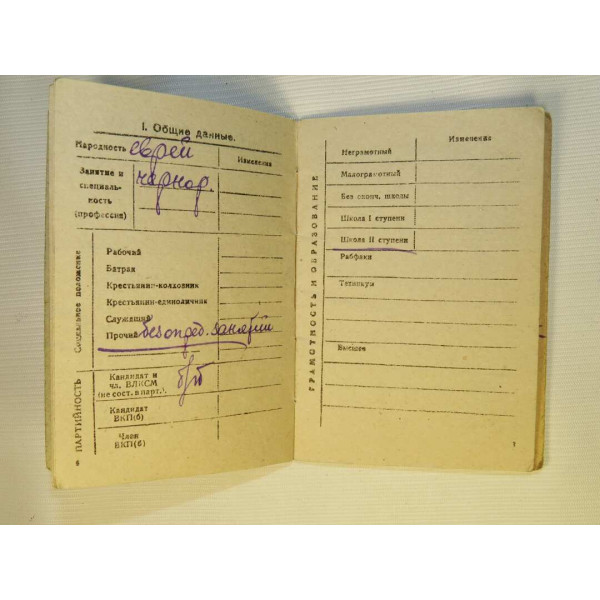 I. Общие данные.
Народность еврей
Изменения
Занятие и
специаль-
ность
(профессия)
чернор.
Социальное положение
Рабочий
Батрак
Крестьянин-колховник
Крестьянин-единоличник
Служащий
Прочий без опред. занятий
ПАРТИЙНОСТЬ
Кандидат и
чл. ВЛКСМ
(не сост. в парт.)
б/п
Кандидат
ВКП(б)
Член
ВКП(б)
6
ГРАМОТНОСТЬ И ОБРАЗОВАНИЕ
Изменения
Неграмотный
Малограмотный
Без оконч. школы
Школа I ступени
Школа II ступени
Рабфаки
Техникум
Высшее
7